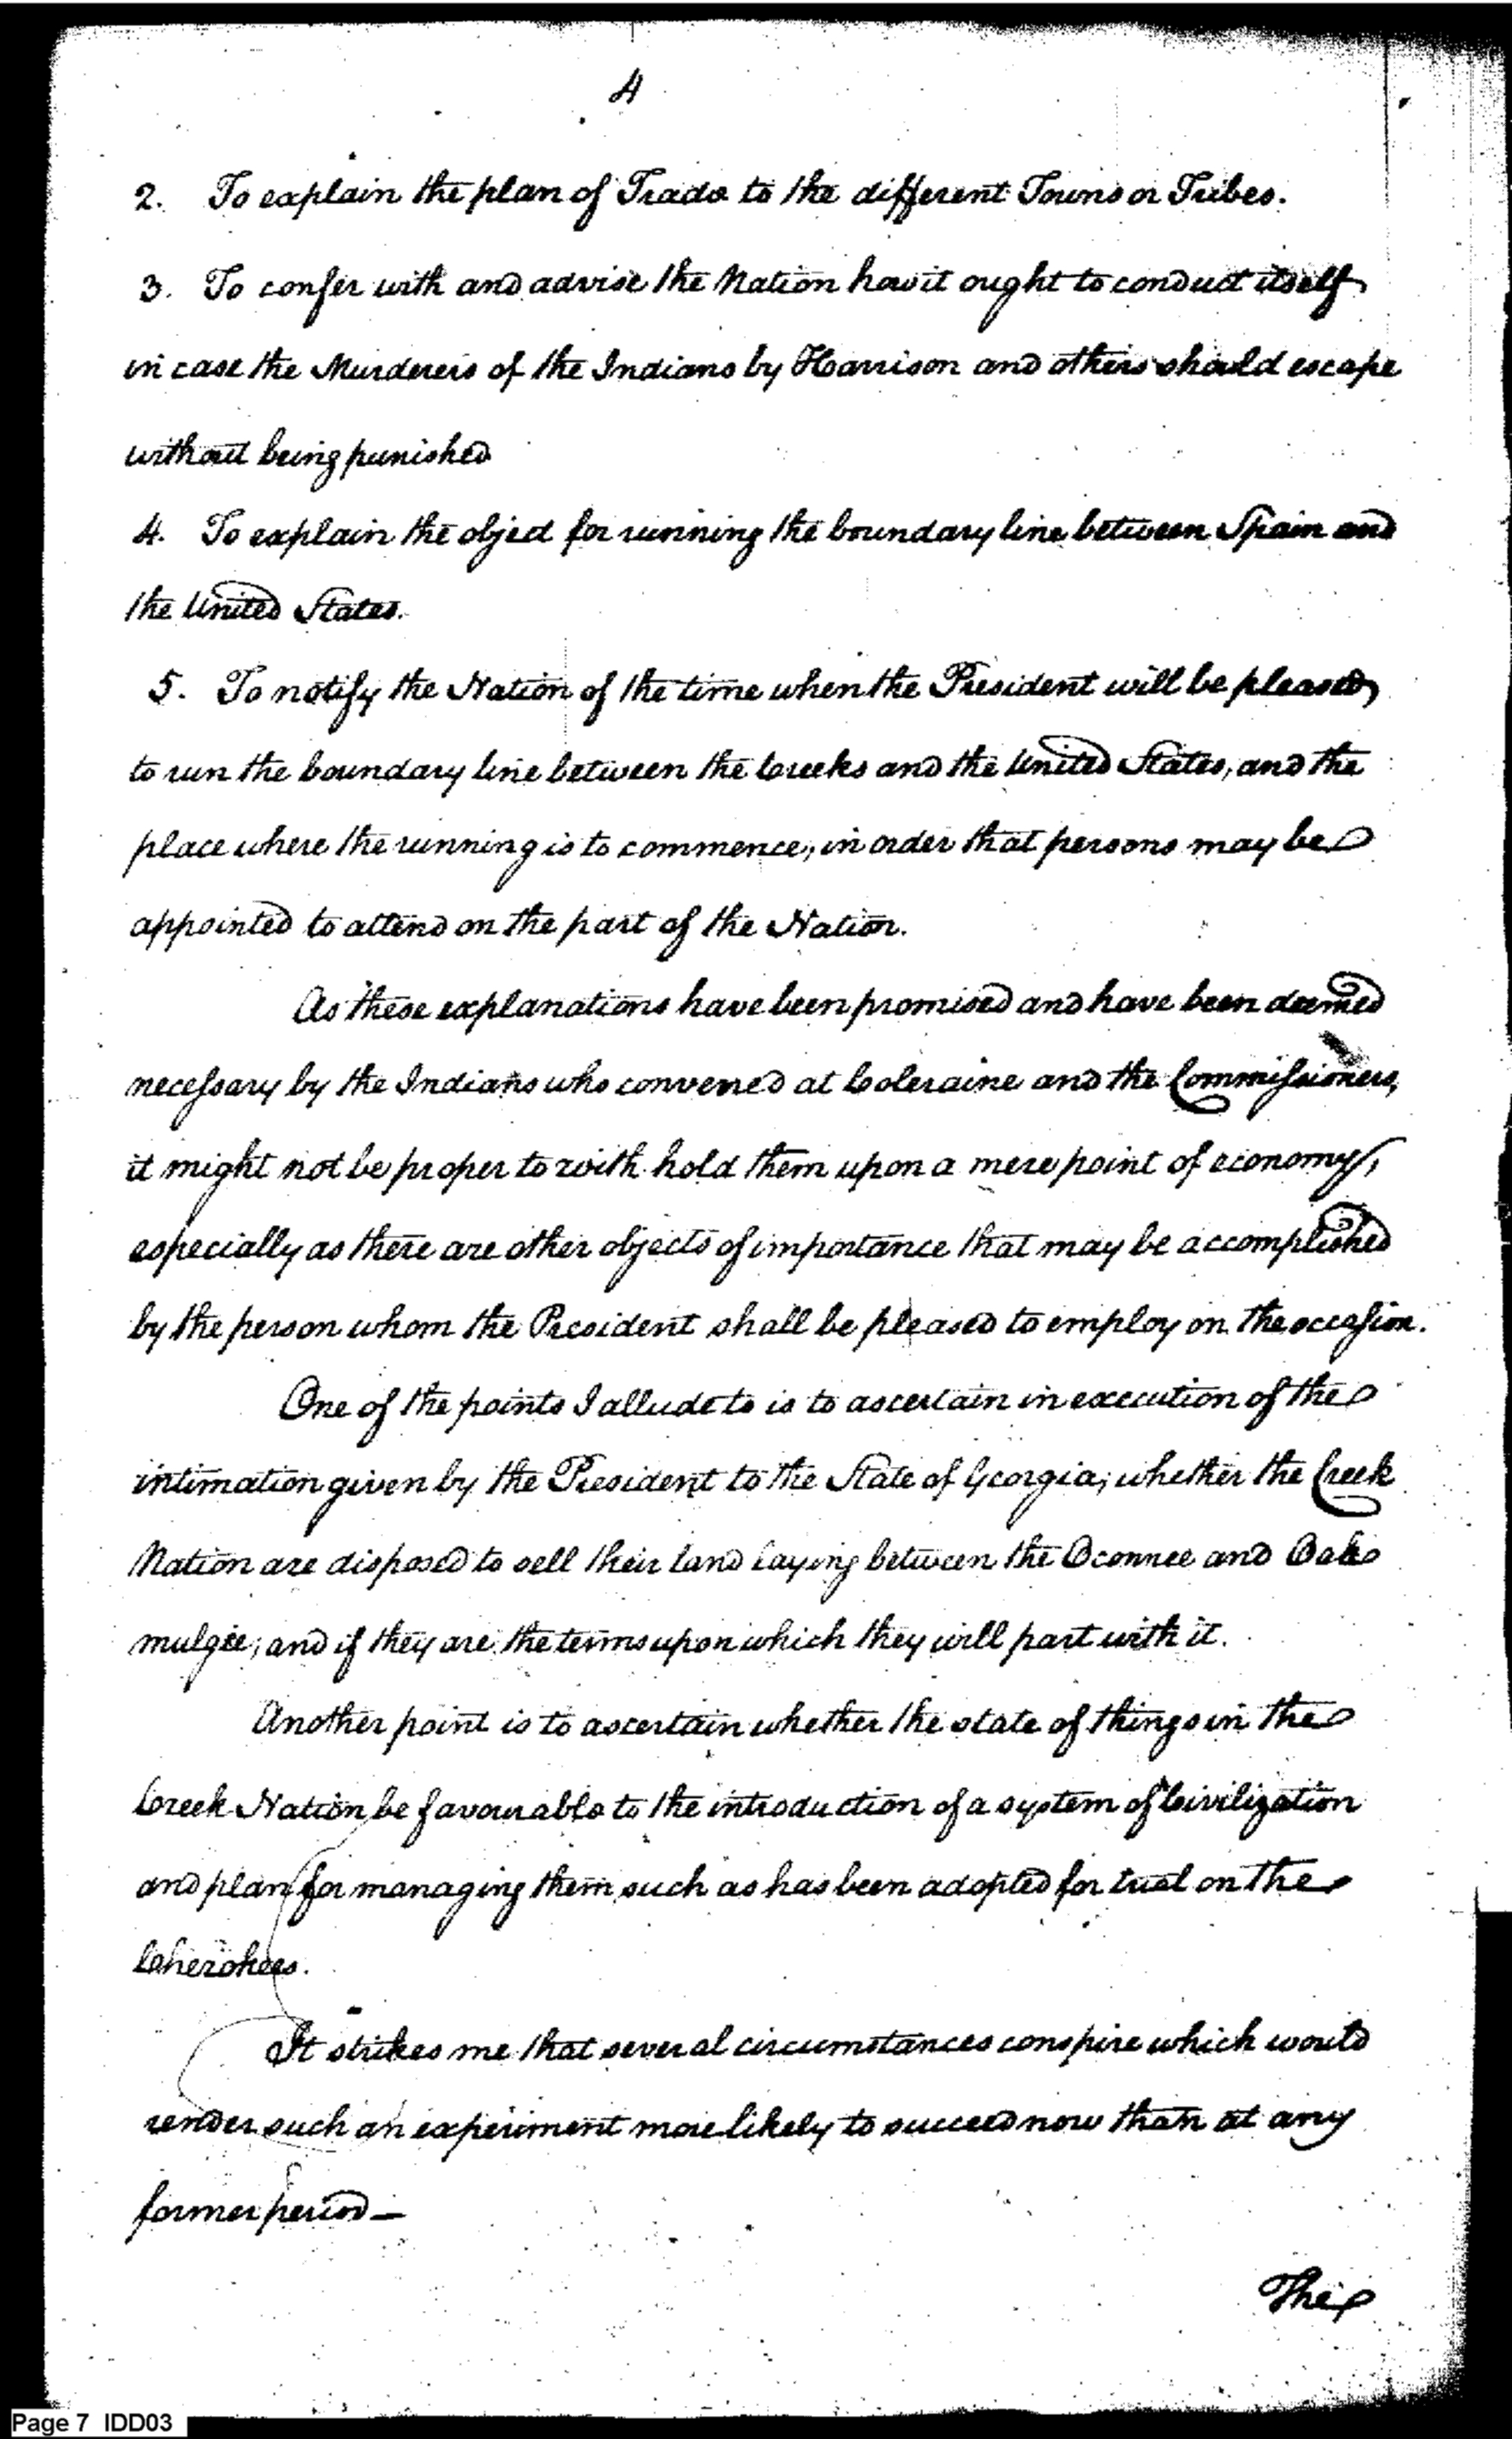 4
2. To explain the plan of Trade to the different Towns or Tribes.
3. To confer with and advise the Nation how it ought to conduct itself
in case the Murderers of the Indians by Harrison and others should escape
without being punished
4. To explain the object for running the boundary line between Spain and
the United States.
5. To notify the Nation of the time when the President will be pleased
to run the boundary line between the Creeks and the United States, and the
place where the running is to commence, in order that persons may be
appointed to attend on the part of the Nation.
As these explanations have been promised and have been deemed
necessary by the Indians who convened at Coleraine and the Commissioners,
it might not be proper to with hold them upon a mere point of economy,
especially as there are other objects of importance that may be accomplished
by the person whom the President shall be pleased to employ on the occasion.
One of the points I allude to is to ascertain in execution of the
intimation given by the President to the State of Georgia, whether the Creek
Nation are disposed to sell their land laying between the Oconnee and Oak
mulgee, and if they are, the terms upon which they will part with it.
Another point is to ascertain whether the state of things in the
Creek Nation be favourable to the introduction of a system of Civilization
and plan for managing them, such as has been adopted for trial on the
Cherokees.
It strikes me that several circumstances conspire which would
render such an experiment more likely to succeed now than at any
former period —
The
Page 7 IDD03